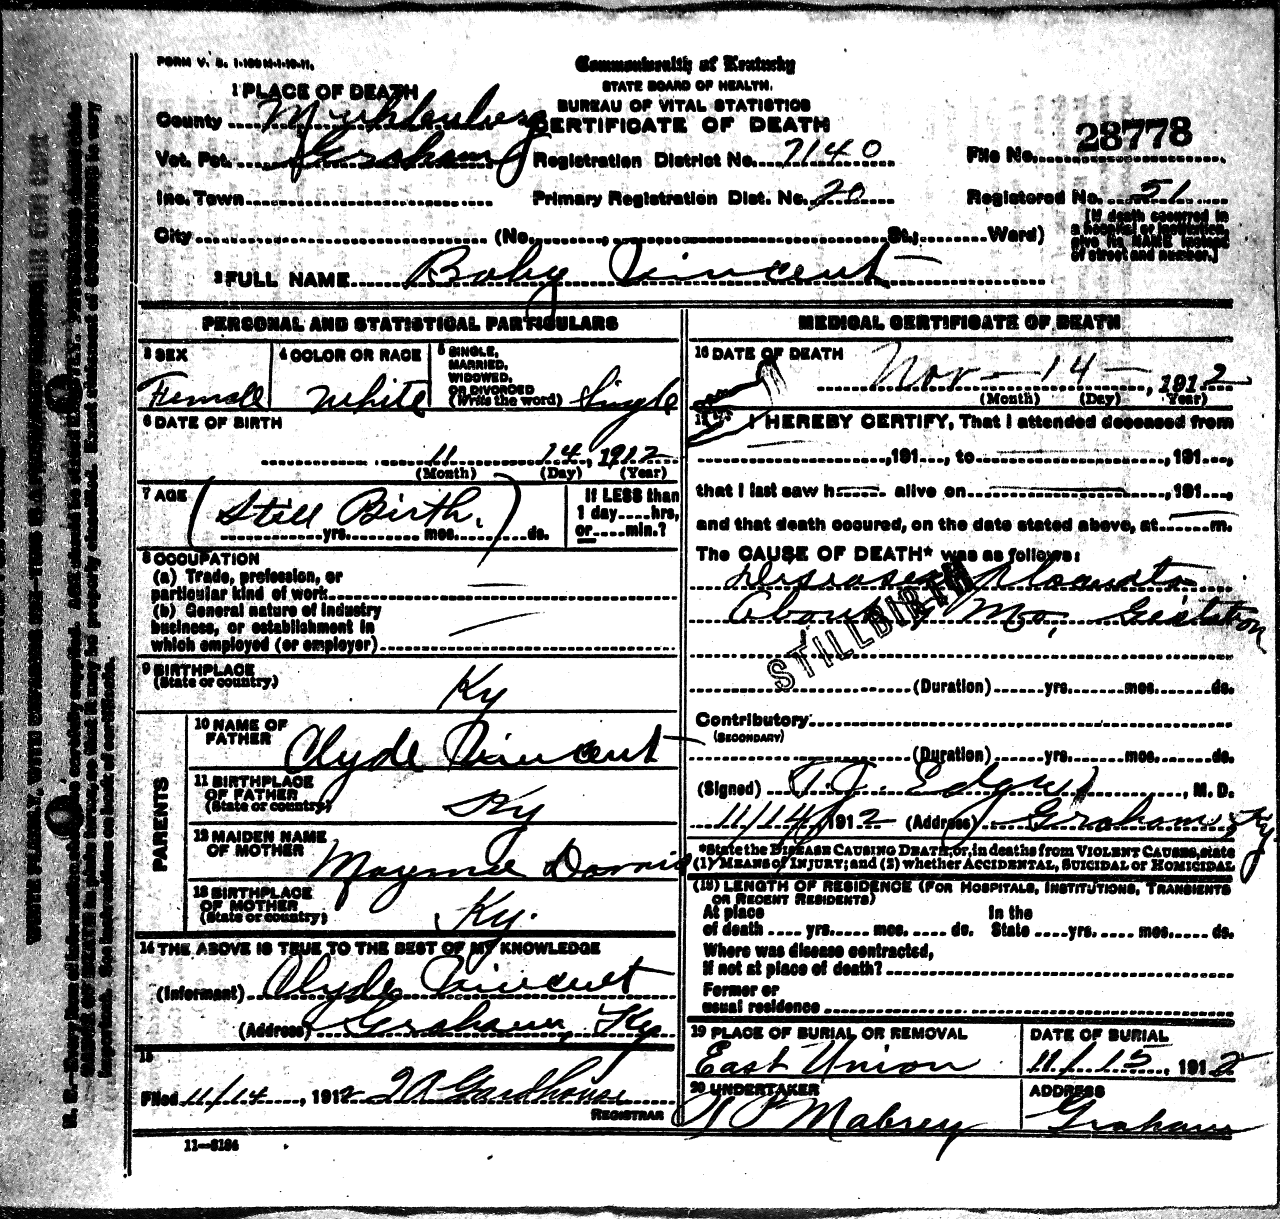 FORM V. S. 1-100M-1-10-11.
Commonwealth of Kentucky
STATE BOARD OF HEALTH.
BUREAU OF VITAL STATISTICS
CERTIFICATE OF DEATH
1 PLACE OF DEATH
County Muhlenberg
Vot. Pct. Graham
Registration District No. 7140
File No. 28778
Inc. Town
Primary Registration Dist. No. 20
Registered No. 51
City (No. , St., Ward)
[If death occurred in
a hospital or institution,
give its NAME instead
of street and number.]
2 FULL NAME Baby Vincent
PERSONAL AND STATISTICAL PARTICULARS
3 SEX
Female
4 COLOR OR RACE
White
5 SINGLE,
MARRIED,
WIDOWED,
OR DIVORCED
(Write the word) Single
6 DATE OF BIRTH
11 14, 1912
(Month) (Day) (Year)
7 AGE
(Still Birth.)
yrs. mos. ds.
If LESS than
1 day....hrs,
or....min.?
8 OCCUPATION
(a) Trade, profession, or
particular kind of work
(b) General nature of industry
business, or establishment in
which employed (or employer)
9 BIRTHPLACE
(State or country)
Ky
PARENTS
10 NAME OF
FATHER
Clyde Vincent
11 BIRTHPLACE
OF FATHER
(State or country)
Ky
12 MAIDEN NAME
OF MOTHER
Mayme
13 BIRTHPLACE
OF MOTHER
(State or country)
Ky.
14 THE ABOVE IS TRUE TO THE BEST OF MY KNOWLEDGE
(Informant) Clyde Vincent
(Address) Graham, Ky
15
Filed 11/14, 1912
REGISTRAR
11—5184
MEDICAL CERTIFICATE OF DEATH
16 DATE OF DEATH
Nov - 14 -, 1912
(Month) (Day) (Year)
17 I HEREBY CERTIFY, That I attended deceased from
,191 , to ,191 ,
that I last saw h alive on ,191 ,
and that death occured, on the date stated above, at m.
The CAUSE OF DEATH* was as follows:
About Mo, Gestation
STILLBIRTH
(Duration) yrs. mos. ds.
Contributory
(SECONDARY)
(Duration) yrs. mos. ds.
(Signed) T. J. , M. D.
11/14 1912 (Address) Graham Ky
*State the DISEASE CAUSING DEATH, or, in deaths from VIOLENT CAUSES, state
(1) MEANS of INJURY; and (2) whether ACCIDENTAL, SUICIDAL or HOMICIDAL
(18) LENGTH OF RESIDENCE (FOR HOSPITALS, INSTITUTIONS, TRANSIENTS
OR RECENT RESIDENTS)
At place In the
of death yrs. mos. ds. State yrs. mos. ds.
Where was disease contracted,
if not at place of death?
Former or
usual residence
19 PLACE OF BURIAL OR REMOVAL
East Union
DATE OF BURIAL
11/15, 1912
20 UNDERTAKER
Mabrey
ADDRESS
Graham